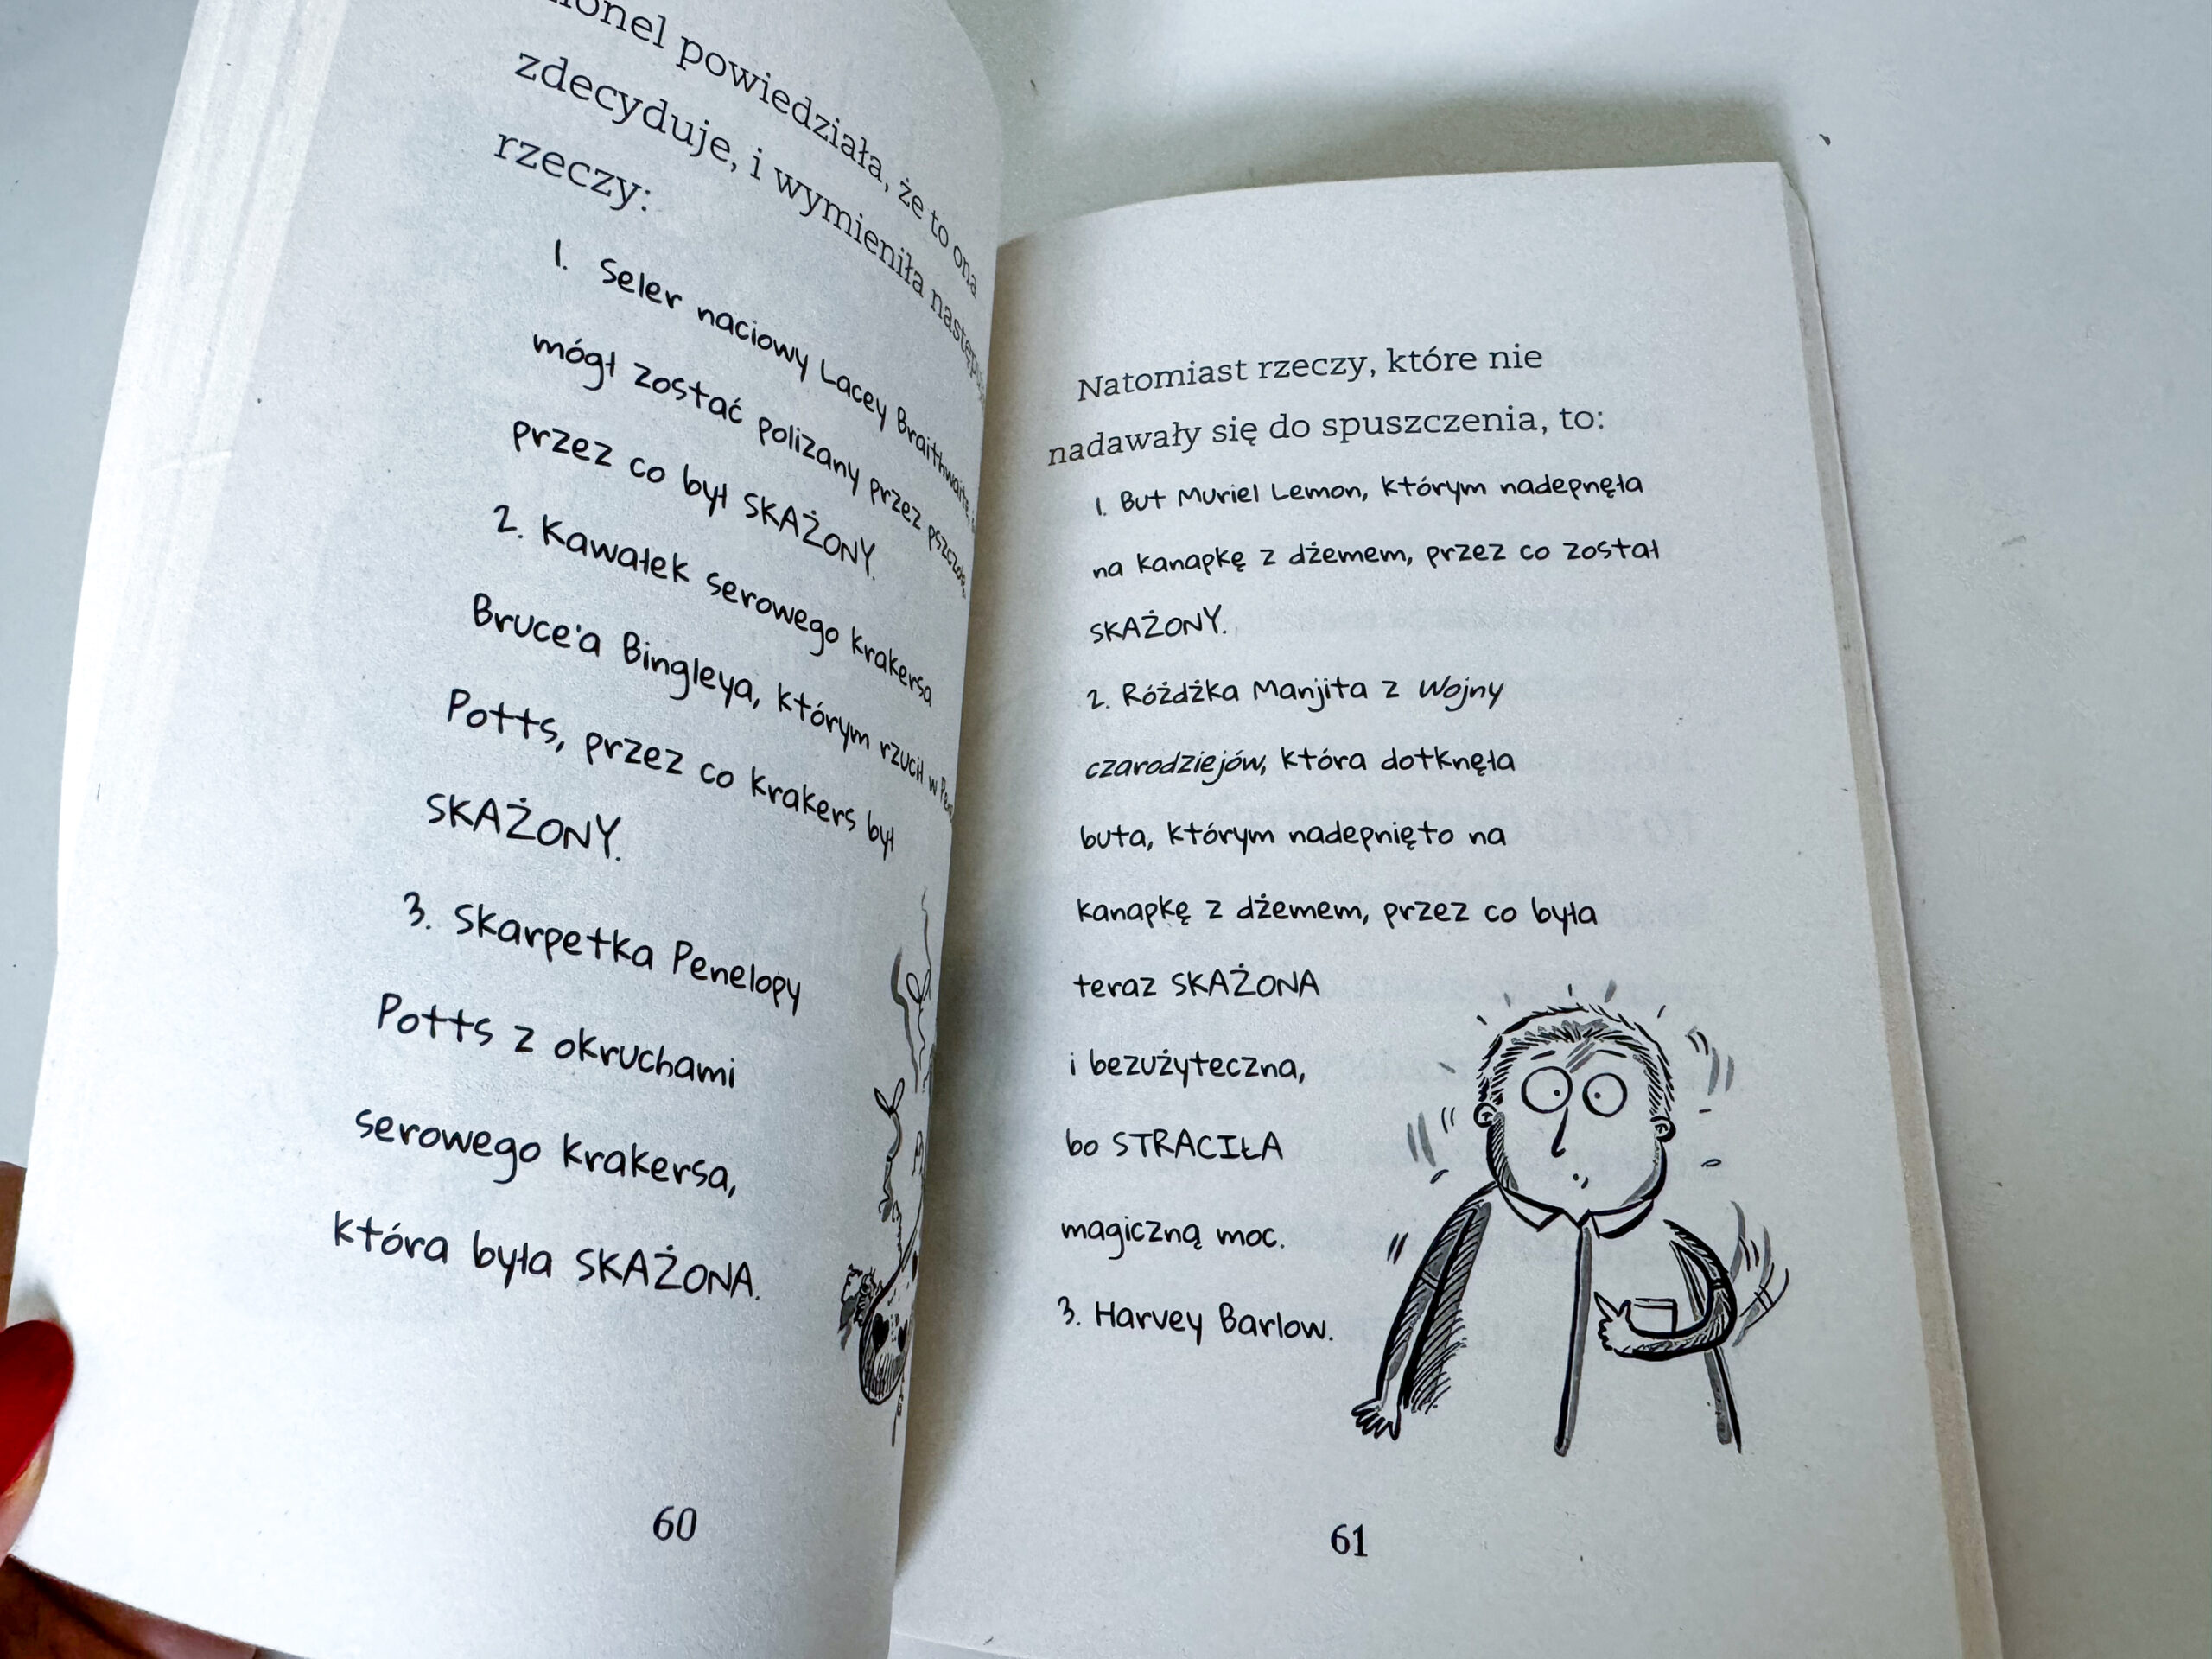 powiedziała, że to ona
zdecyduje, i wymieniła
rzeczy:
1. Seler naciowy Lacey Braithwaite,
mógł zostać polizany przez
przez co był SKAŻONY.
2. Kawałek serowego krakersa
Bruce'a Bingleya, którym rzucił w
Potts, przez co krakers był
SKAŻONY.
3. Skarpetka Penelopy
Potts z okruchami
serowego krakersa,
która była SKAŻONA.
60
Natomiast rzeczy, które nie
nadawały się do spuszczenia, to:
1. But Muriel Lemon, którym nadepnęła
na kanapkę z dżemem, przez co został
SKAŻONY.
2. Różdżka Manjita z Wojny
czarodziejów, która dotknęła
buta, którym nadepnięto na
kanapkę z dżemem, przez co była
teraz SKAŻONA
i bezużyteczna,
bo STRACIŁA
magiczną moc.
3. Harvey Barlow.
61